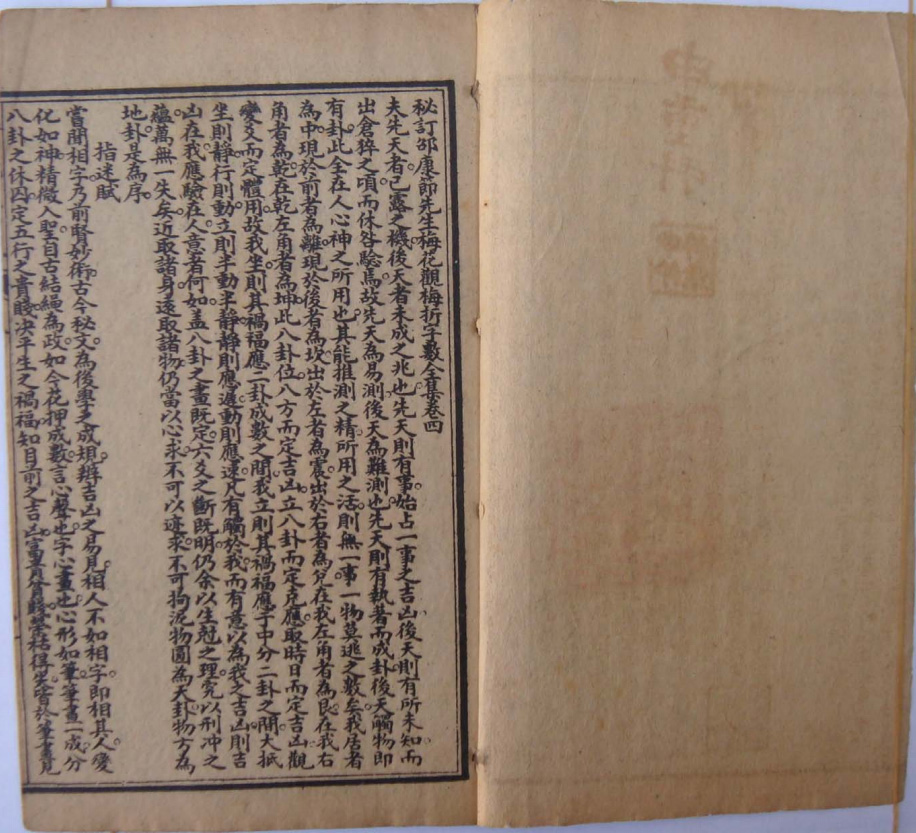 秘訂邵康節先生梅花觀梅折字數全集卷四
夫先天者。已露之機後天者未成之兆也。先天則有事始占一事之吉凶後天則有所未知而
出倉猝之頃而休咎驗焉故先天為易測後天為難測也先天則有執著而成卦後天觸物即
有卦。此全在人心神之所用也其能推測之精所用之活則無一事一物莫逃之數矣。我居者
為中現於前者為離現於後者為坎出於左者為震出於右者為兌在我左角者為艮在我右
角者為乾在乾左角者為坤此八卦位八方而定吉凶立八卦而定克應取時日而定吉凶觀
變爻而定體用故我坐則其禍福應二卦成數之間我立則其禍福應于中分二卦之間大抵
坐則靜行則動。立則半動半靜靜則應遲動則應速凡有觸於我而有意以為我之吉凶則吉
凶在我應驗在人意者何如盖八卦之畫既定六爻之斷既明仍余以生尅之理究以刑冲之
蘊萬無一失矣。近取諸身遠取諸物仍當以心求不可以迹求不可拘泥物圓為天卦物方為
地卦。是為序
指迷賦
嘗聞相字乃前賢妙術。古今秘文為後學之成規辨吉凶之易見。相人不如相字。即相其人。變
化如神。精微入聖。自古結繩為政。如今花押成數。言心聲也。字心畫也。心形如筆筆畫一成。分
八卦之休囚。定五行之貴賤。決平生之禍福知目前之吉凶富貴貧賤榮枯得失皆於筆畫見